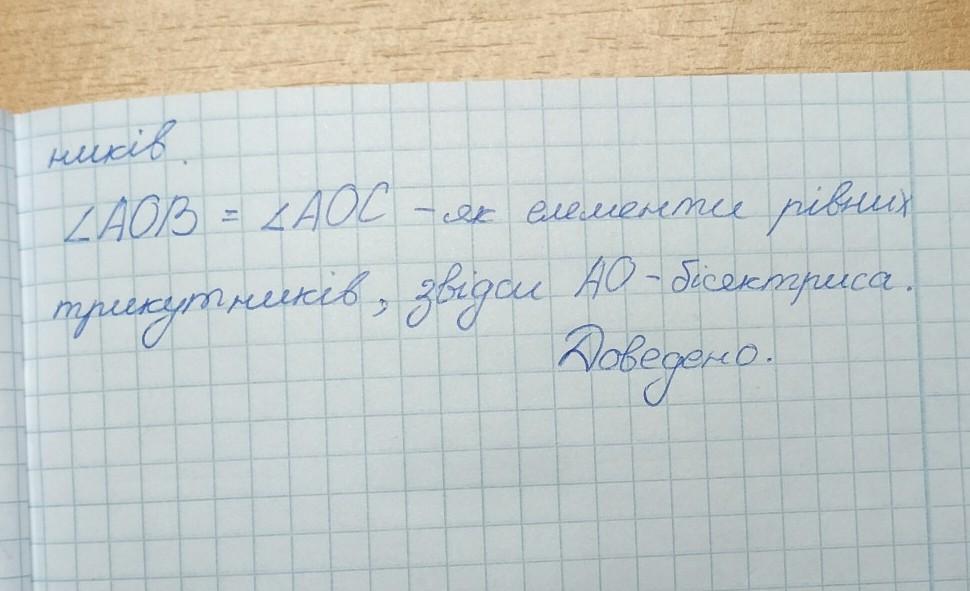 ників.
∠AOB = ∠AOC - як елементи рівних
трикутників, звідси AO - бісектриса.
Доведено.